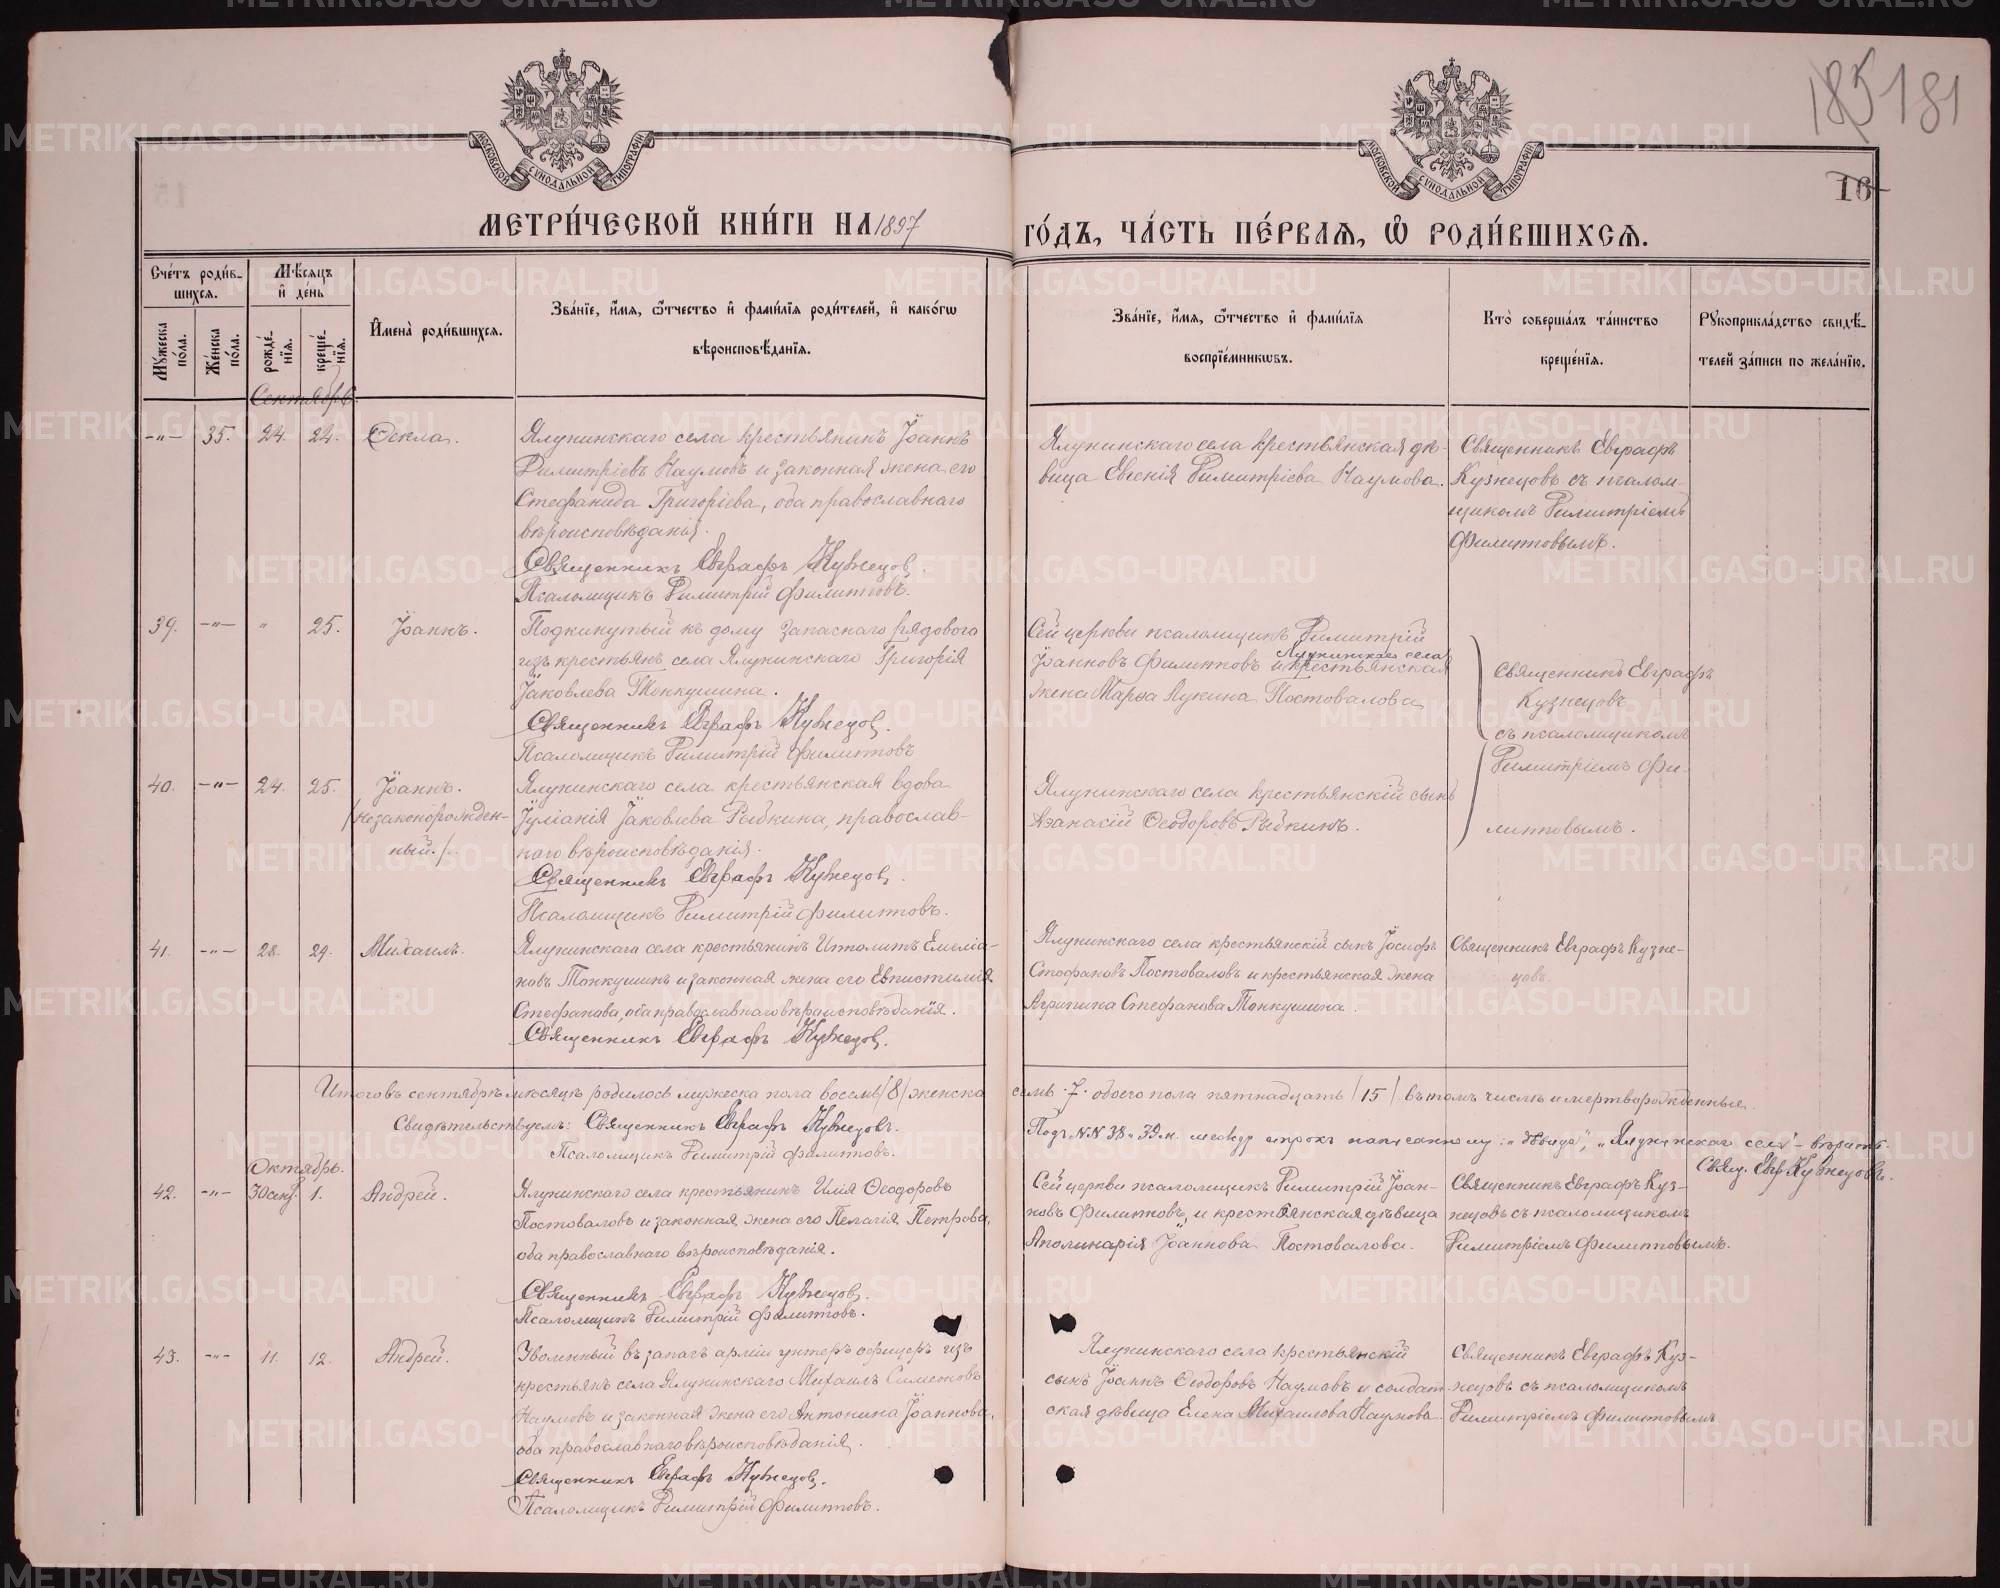 185 181
16
МОСКОВСКОЙ СУНОДАЛЬНОЙ ТИПОГРАФИИ
МОСКОВСКОЙ СУНОДАЛЬНОЙ ТИПОГРАФИИ
МЕТРИ́ЧЕСКОЙ КНИ́ГИ НА 1897
ГО́ДЪ, ЧА́СТЬ ПЕ́РВАЯ, Ѡ РОДИ́ВШИХСЯ.
Сче́тъ роди́в-
шихся.
Мѣ́сяцъ
и҆ де́нь
Мꙋ́жеска по́ла.
Же́нска по́ла.
рожде́-нїѧ.
креще́-нїѧ.
И҆мена̀ роди́вшихся.
Зва́нїе, и҆́мѧ, ѻ҆́тчество и҆ фами́лїѧ роди́телей, и҆ како́гѡ
вѣроисповѣ́данїѧ.
Зва́нїе, и҆́мѧ, ѻ҆́тчество и҆ фами́лїѧ
воспрїе́мникѡвъ.
Кто̀ соверша́лъ та́инство
креще́нїѧ.
Рꙋкоприкла́дство свидѣ́-
телей за́писи по жела́нїю.
Сентябрь
-"- 35. 24. 24. Ѳекла.
Ялунинскаго села крестьянинъ Іоаннъ
Димитріевъ Наумовъ и законная жена его
Стефанида Григоріева, оба православнаго
вѣроисповѣданія.
Священникъ Евграфъ Кузнецовъ.
Псаломщикъ Димитрій Филитовъ.
Ялунинскаго села крестьянская дѣ-
вица Евгенія Димитріева Наумова.
Священникъ Евграфъ
Кузнецовъ съ псалом-
щикомъ Димитріемъ
Филитовымъ.
39. -"- " 25. Іоаннъ.
Подкинутый къ дому запаснаго рядового
изъ крестьянъ села Ялунинскаго Григорія
Іаковлева Тонкушина.
Священникъ Евграфъ Кузнецовъ.
Псаломщикъ Димитрій Филитовъ
Сей церкви псаломщикъ Димитрій
Ялунинскаго села
Іоанновъ Филитовъ и крестьянская
жена Марѳа Лукина Постовалова
Священникъ Евграфъ
Кузнецовъ
съ псаломщикомъ
Димитріемъ Фи-
литовымъ.
40. -"- 24. 25. Іоаннъ.
/незаконорожден-
ный./
Ялунинскаго села крестьянская вдова
Іуліанія Іаковлева Рыбкина, православ-
наго вѣроисповѣданія.
Священникъ Евграфъ Кузнецовъ.
Псаломщикъ Димитрій Филитовъ.
Ялунинскаго села крестьянскій сынъ
Аѳанасій Ѳеодоровъ Рыбкинъ.
41. -"- 28. 29. Михаилъ.
Ялунинскаго села крестьянинъ Ипполитъ Емеліа-
новъ Тонкушинъ и законная жена его Евпистимія
Стефанова, оба православнаго вѣроисповѣданія.
Священникъ Евграфъ Кузнецовъ.
Ялунинскаго села крестьянскій сынъ Іосифъ
Стефановъ Постоваловъ и крестьянская жена
Агрипина Стефанова Тонкушина.
Священникъ Евграфъ Кузне-
цовъ.
Итого въ сентябрѣ мѣсяцѣ родилось мужеска пола восемь /8/ женска
семь .7. обоего пола пятнадцать /15/ въ томъ числѣ и мертворожденные.
Свидѣтельствуемъ: Священникъ Евграфъ Кузнецовъ.
Псаломщикъ Димитрій Филитовъ.
Подъ NN 38 и 39 м. между строкъ написанному: "дѣвица", "Ялунинскаго села" - вѣрить.
Свящ. Евгр. Кузнецовъ.
Октябрь.
42. -"- 30 сент. 1. Андрей.
Ялунинскаго села крестьянинъ Илія Ѳеодоровъ
Постоваловъ и законная жена его Пелагія Петрова,
оба православнаго вѣроисповѣданія.
Священникъ Евграфъ Кузнецовъ.
Псаломщикъ Димитрій Филитовъ.
Сей церкви псаломщикъ Димитрій Іоан-
новъ Филитовъ, и крестьянская дѣвица
Аполинарія Іоаннова Постовалова.
Священникъ Евграфъ Куз-
нецовъ съ псаломщикомъ
Димитріемъ Филитовымъ.
43. -"- 11. 12. Андрей.
Уволенный въ запасъ арміи унтеръ офицеръ изъ
крестьянъ села Ялунинскаго Михаилъ Симеоновъ
Наумовъ и законная жена его Антонина Іоаннова,
оба православнаго вѣроисповѣданія.
Священникъ Евграфъ Кузнецовъ.
Псаломщикъ Димитрій Филитовъ.
Ялунинскаго села крестьянскій
сынъ Іоаннъ Ѳеодоровъ Наумовъ и солдат-
ская дѣвица Елена Михаилова Наумова.
Священникъ Евграфъ Куз-
нецовъ съ псаломщикомъ
Димитріемъ Филитовымъ.
METRIKI.GASO-URAL.RU